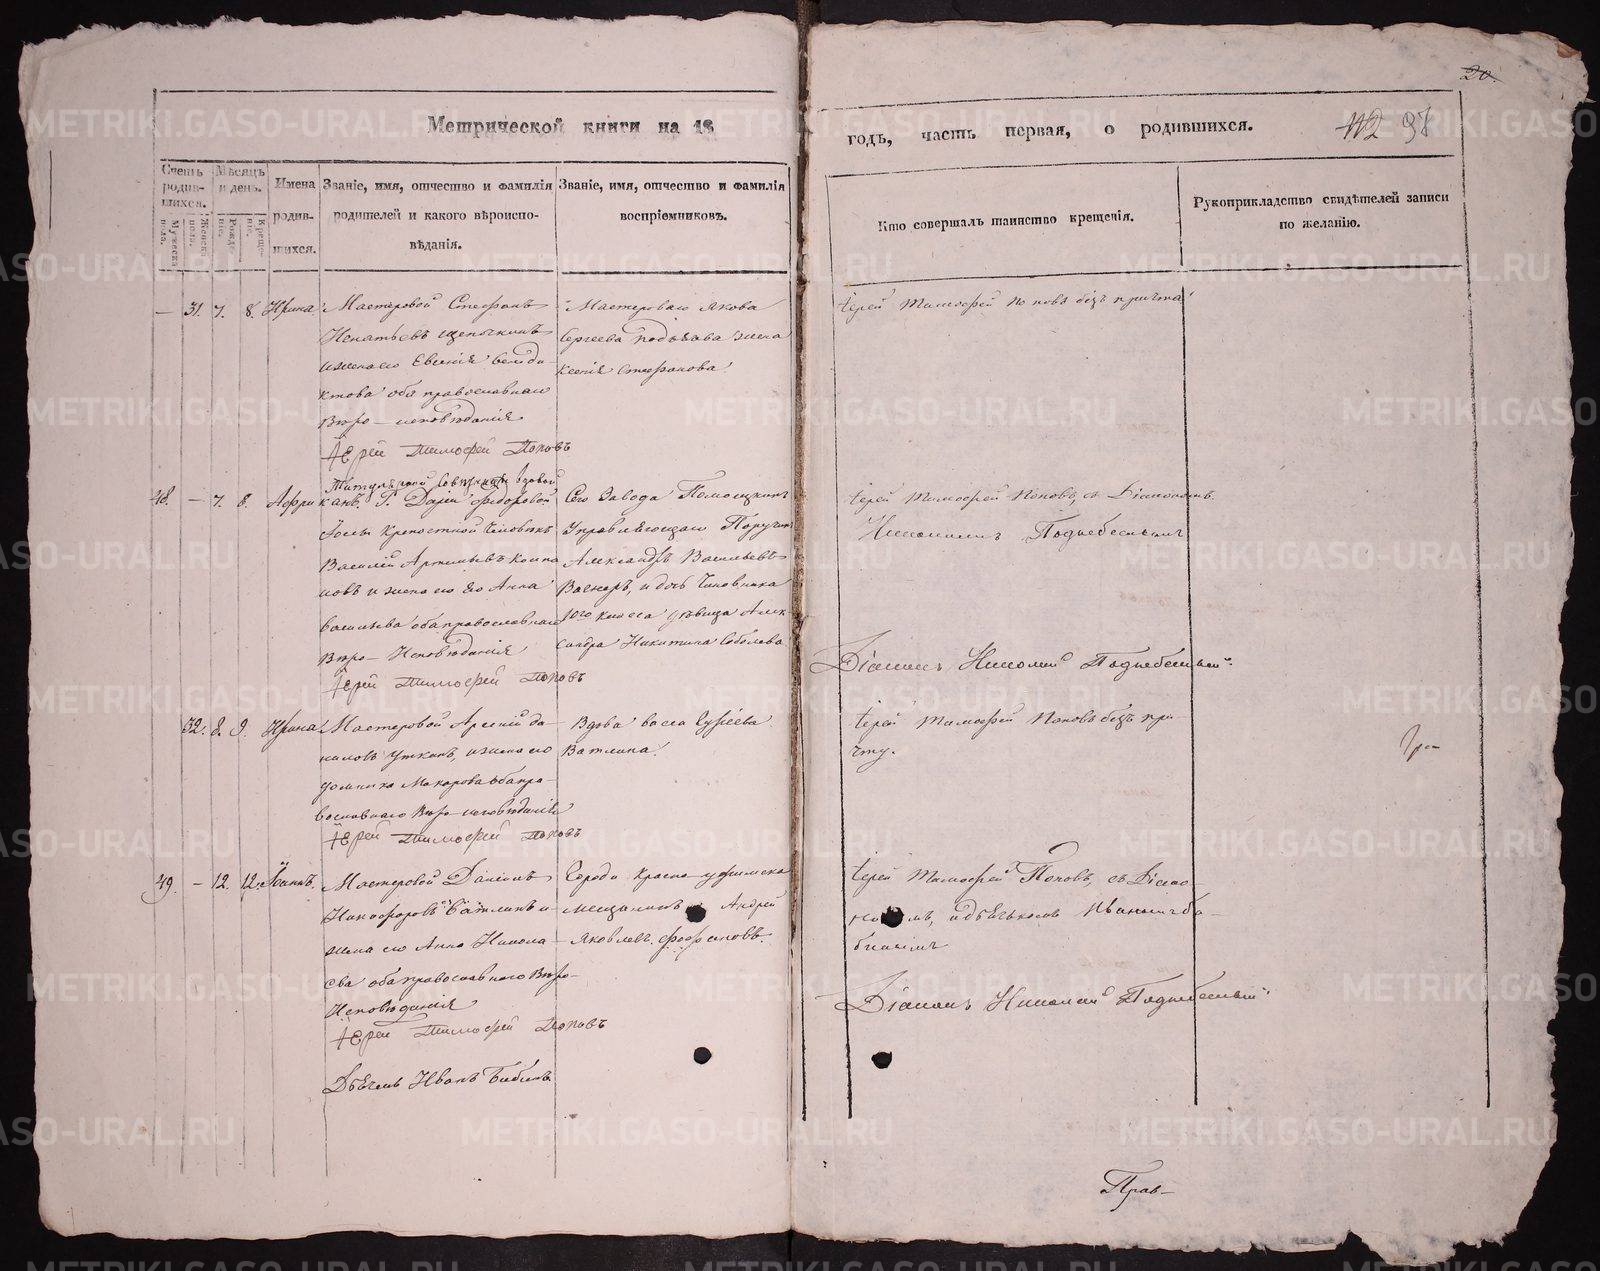 20.
Метрической книги на 18
годъ, часть первая, о родившихся.
112 98
Счетъ родив-шихся.
Мужеска пола.
Женска пола.
Мѣсяцъ и день.
Рожде-ніе.
Креще-ніе.
Имена родив-шихся.
Званіе, имя, отчество и фамилія
родителей и какого вѣроиспо-
вѣданія.
Званіе, имя, отчество и фамилія
воспріемниковъ.
Кто совершалъ таинство крещенія.
Рукоприкладство свидѣтелей записи
по желанію.
— 31. 7. 8. Ирина
Мастеровой Стефанъ
Игнатьевъ Щепочкинъ
и жена его Евгенія Венеди-
ктова оба православнаго
Вѣро-исповѣданія
Іерей Тимофей Поповъ
Мастероваго Якова
Сергеева жена
Ксенія Стефанова
Іерей Тимофей Поповъ безъ причта
48. — 7. 8. Африканъ.
Титулярной Совѣтницы
Г. Дарьи Федоровой
крепостной человѣкъ
Василій Артемьевъ
и жена его Анна
Васильева оба православнаго
Вѣро-Исповѣданія
Іерей Тимофей Поповъ
Сего Завода Помощникъ
Управляющаго Поручикъ
Александръ Васильевъ
Вагнеръ, и дочь Чиновника
10го класса дѣвица Алек-
сандра Никитина Соболева
Іерей Тимофей Поповъ, съ Діакономъ
Николаемъ Поднебеснымъ
Діаконъ Николай Поднебесный
32. 8. 9. Ирина
Мастеровой Арсеній Да-
ниловъ Уткинъ, и жена его
Домника Макарова оба пра-
вославнаго Вѣро-исповѣданія
Іерей Тимофей Поповъ
Вдова Васса Сергіева
Ватлина
Іерей Тимофей Поповъ безъ при-
чту.
49. — 12. 12. Іоаннъ.
Мастеровой Даніилъ
Никифоровъ Ватлинъ и
жена его Анна Никола-
ева оба православнаго Вѣро-
Исповѣданія
Іерей Тимофей Поповъ
Дьячекъ Иванъ Бабинъ
Города Красно-уфимска
мещанинъ Андрей
Яковлевъ Феофановъ.
Іерей Тимофей Поповъ, съ Діако-
номъ, и дьячькомъ Иваномъ Ба-
бинымъ
Діаконъ Николай Поднебесный
Прав-
METRIKI.GASO-URAL.RU